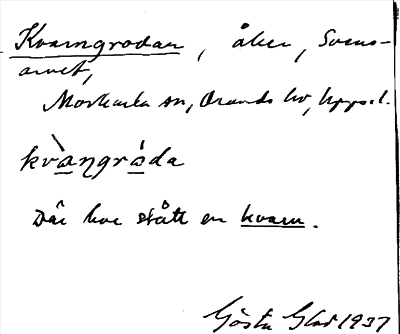 Kvarngrodan, åker, Svens-
arvet,
Morkarla sn, Oland​s hd, Upps. l.
kvàngróda
Där har stått en kvarn.
Gösta Glad 1937